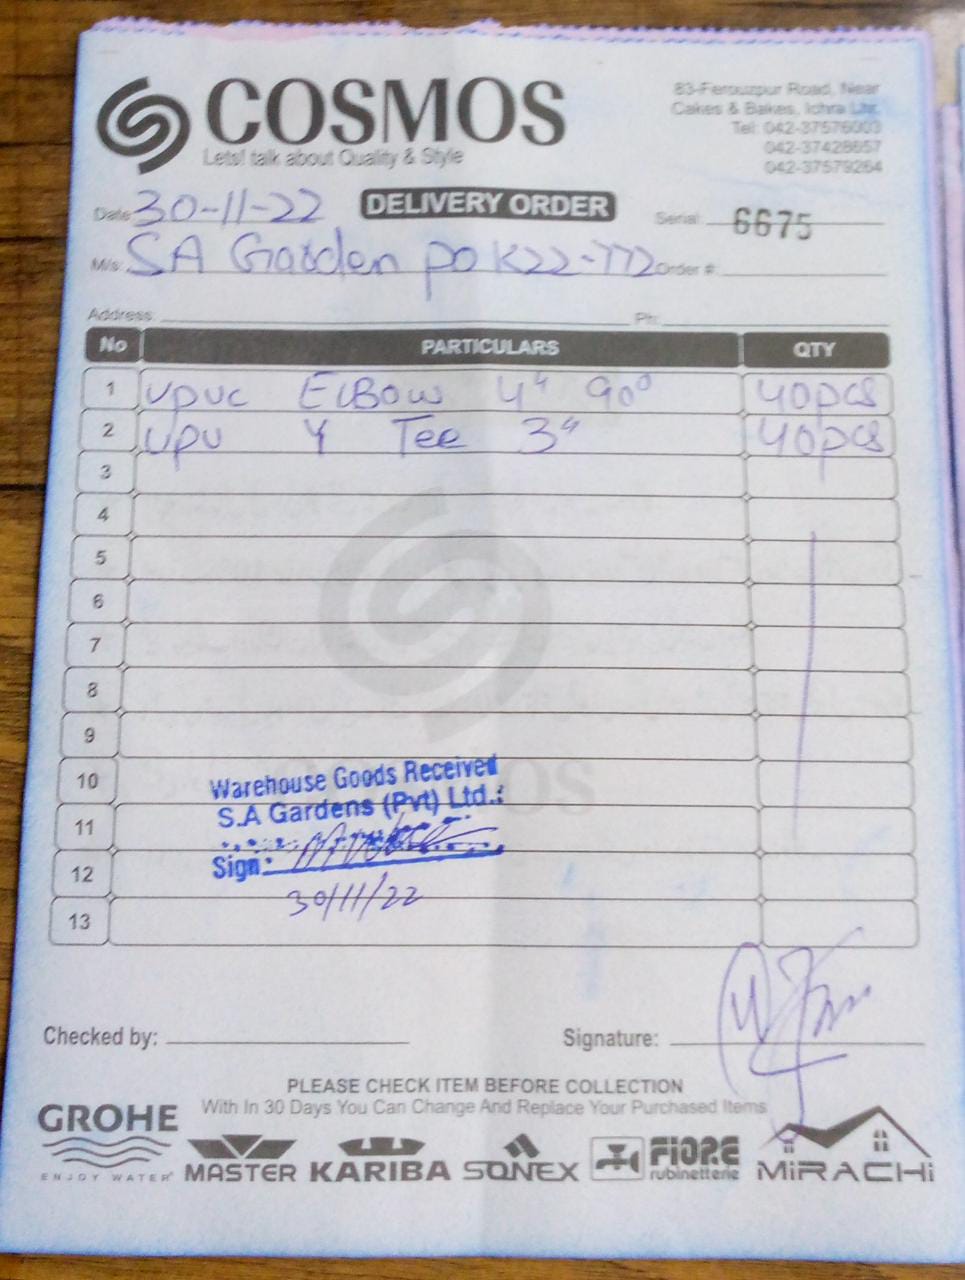 COSMOS
Lets! talk about Quality & Style
83-Ferouzpur Road, Near
Cakes & Bakes, Ichra Lhr.
Tel: 042-37576003
042-37428657
042-37579264
Date: 30-11-22 DELIVERY ORDER Serial: 6675
M/s: SA Garden PO K22-772 Order #:
Address: Ph:
No PARTICULARS QTY
1 UPVC ElBow 4" 90° 40pcs
2 UPV Y Tee 3" 40pcs
3
4
5
6
7
8
9
10
11
12
13
Warehouse Goods Received
S.A Gardens (Pvt) Ltd.
Sign:
30/11/22
Checked by: Signature:
PLEASE CHECK ITEM BEFORE COLLECTION
With In 30 Days You Can Change And Replace Your Purchased Items
GROHE
ENJOY WATER
MASTER KARIBA SONEX FIORE rubinetterie MiRACHi